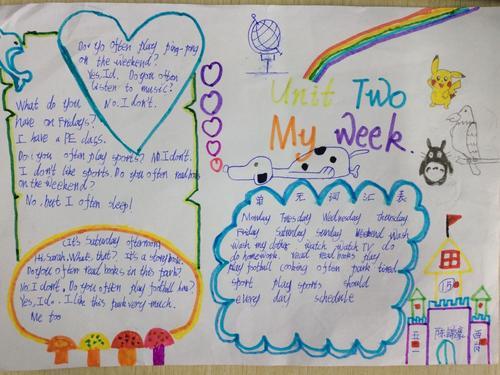 Do yo often play ping-pong
on the weekend?
Yes,I.d. Do you often
listen to music?
No.I don't.
What do you
have on Fridays?
I have a PE class.
Do you often play sports? No.I don't.
I don't like sports Do you often read books
on the weekend?
No. but I often sleep!
It's Saturday afternoon
Hi.Sarah.What's that? It's a story book.
Do you often read books in this park?
No.I don't. Do you often play football here?
Yes,I.d. I like this park very much.
Me too
Unit Two
My Week.
单元词汇表
Monday Tuesday Wednesday Thursday
Friday Saturday Sunday Weekend wash
wash my clothes watch watch TV do
do homework. read read books play
play football cooking often park tired
sport play sports should
every day schedule
五